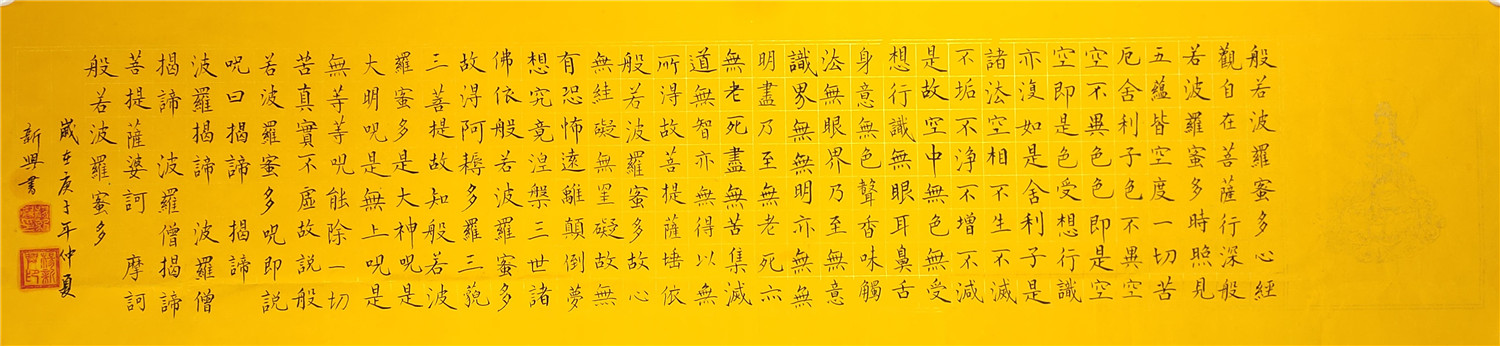 般若波羅蜜多心經
觀自在菩薩行深般
若波羅蜜多時照見
五蘊皆空度一切苦
厄舍利子色不異空
空不異色色即是空
空即是色受想行識
亦復如是舍利子是
諸法空相不生不滅
不垢不淨不增不減
是故空中無色無受
想行識無眼耳鼻舌
身意無色聲香味觸
法無眼界乃至無意
識界無無明亦無無
明盡乃至無老死亦
無老死盡無苦集滅
道無智亦無得以無
所得故菩提薩埵依
般若波羅蜜多故心
無絓礙無罣礙故無
有恐怖遠離顛倒夢
想究竟涅槃三世諸
佛依般若波羅蜜多
故得阿耨多羅三藐
三菩提故知般若波
羅蜜多是大神呪是
大明呪是無上呪是
無等等呪能除一切
苦真實不虛故說般
若波羅蜜多呪即說
呪曰揭諦 揭諦
波羅揭諦 波羅僧
揭諦 波羅僧揭諦
菩提薩婆訶 摩訶
般若波羅蜜多
歲在庚子年仲夏
新興書